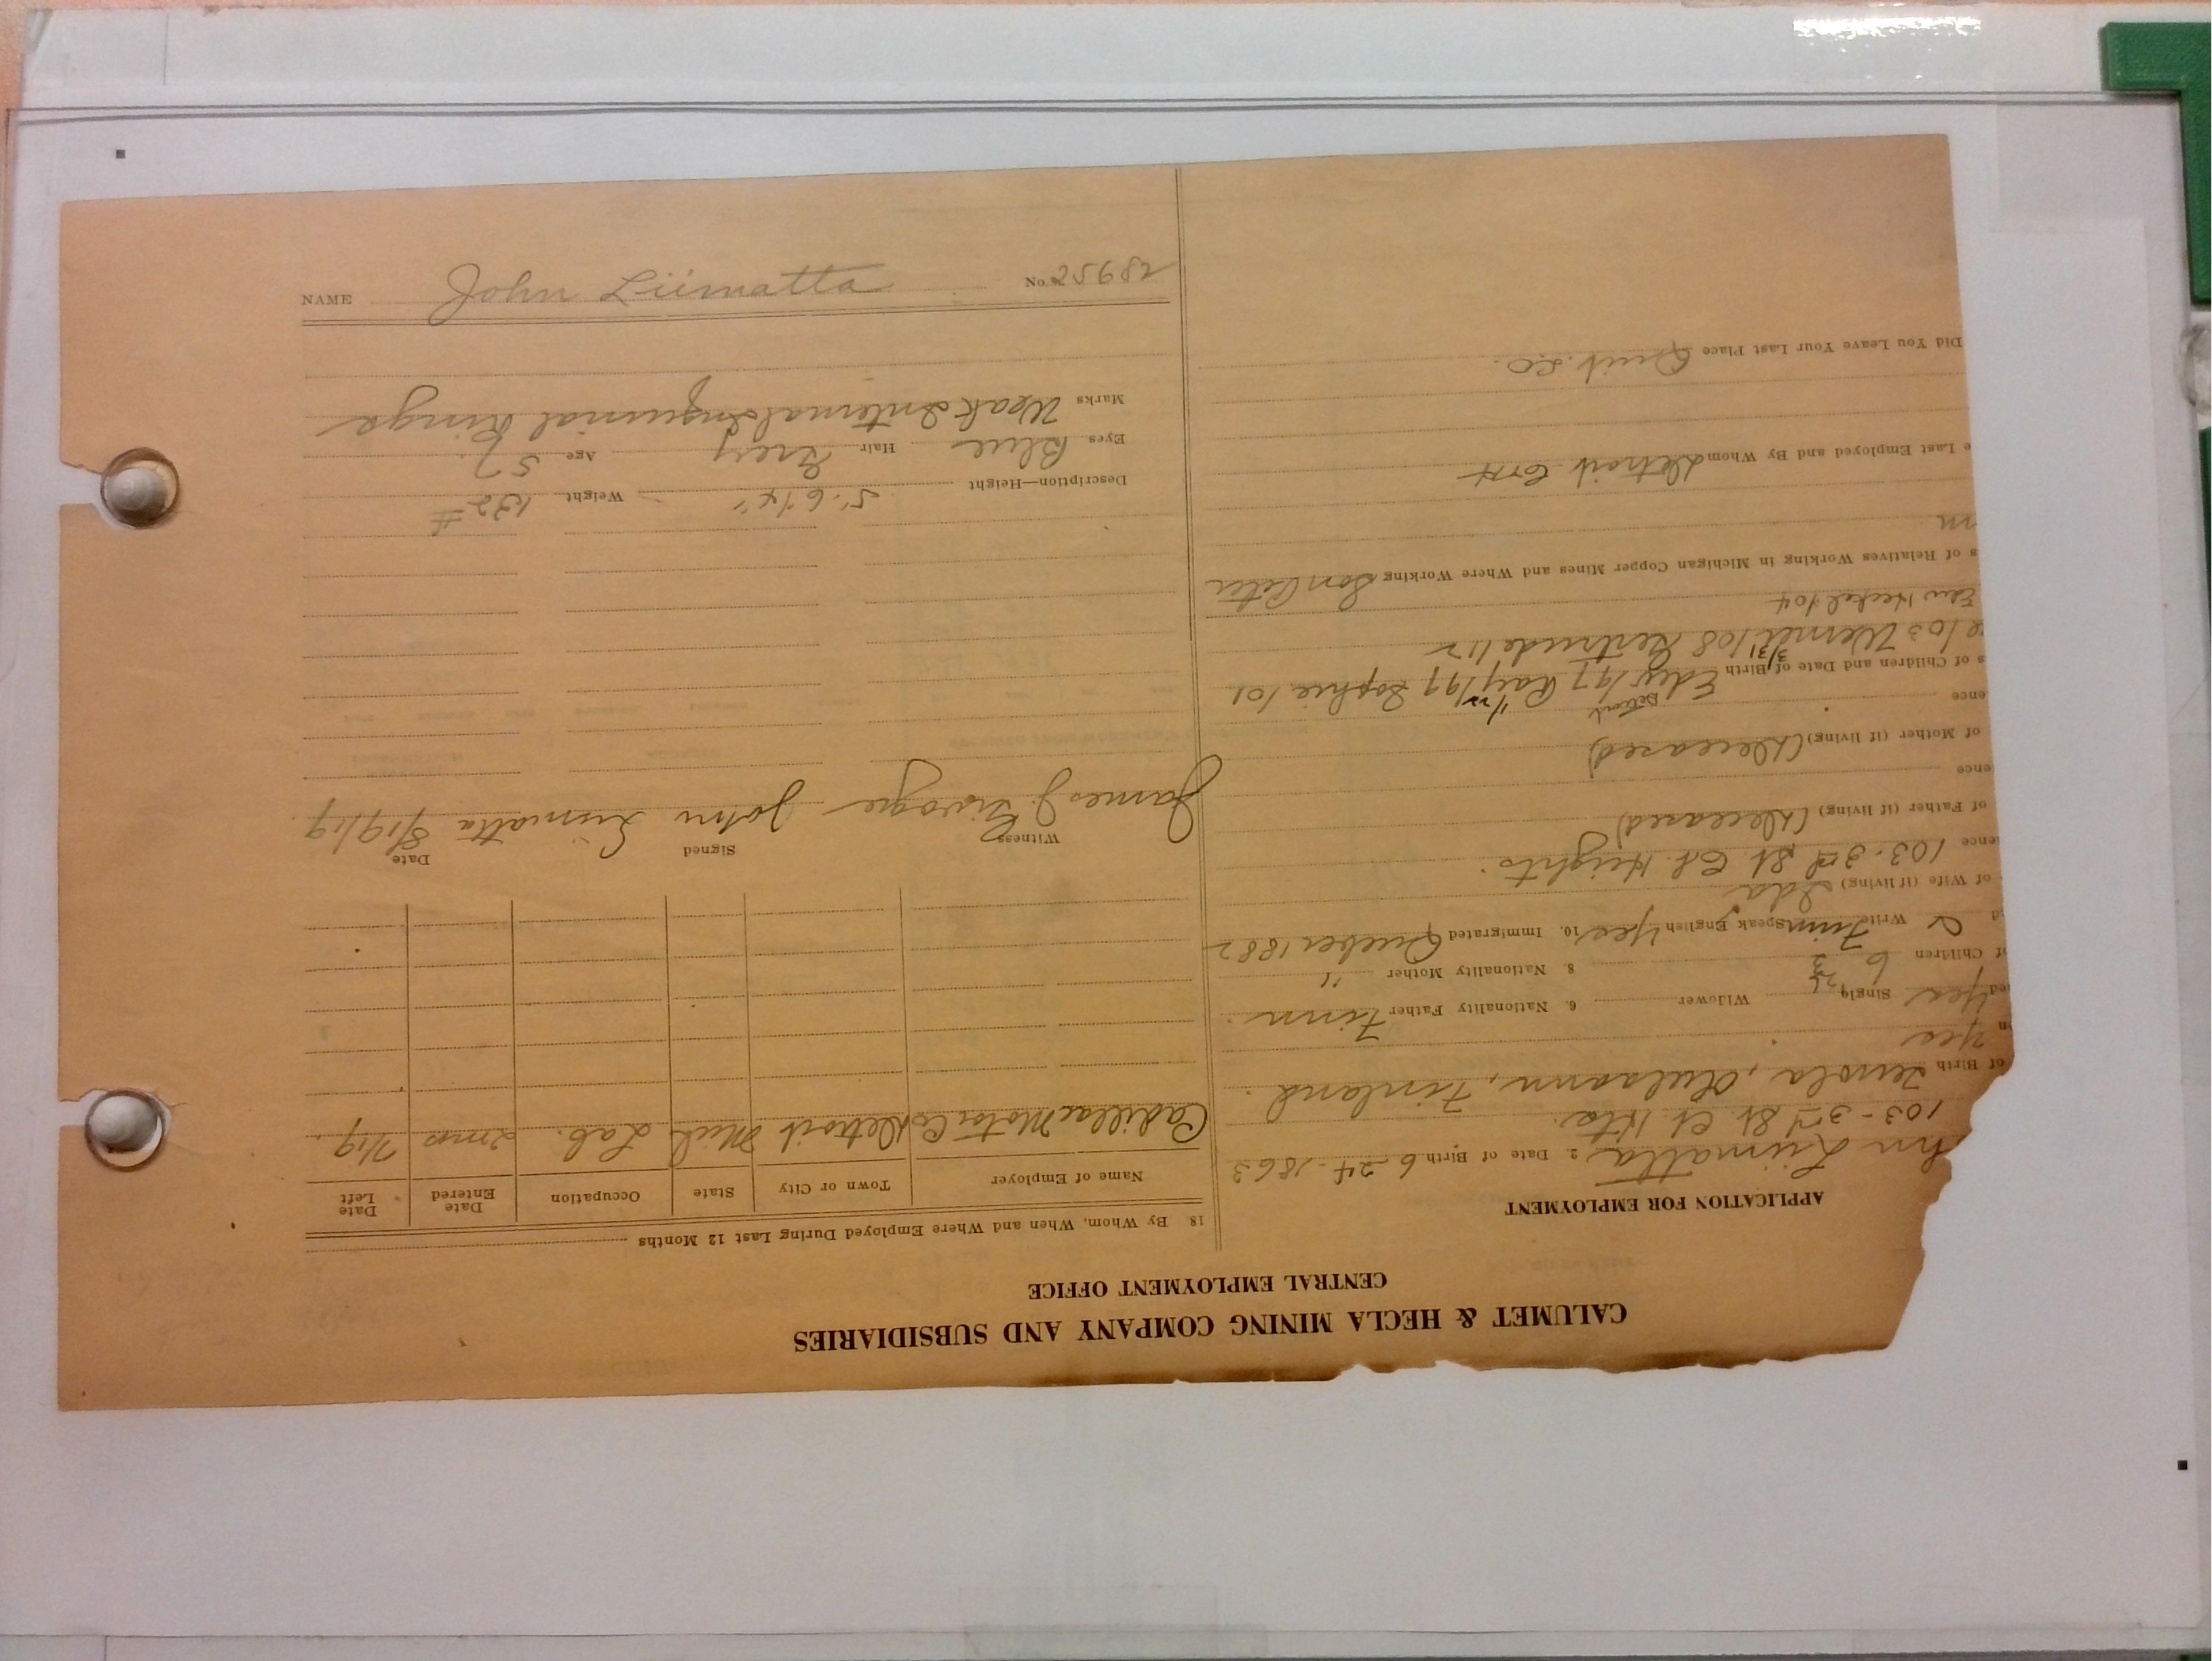 CALUMET & HECLA MINING COMPANY AND SUBSIDIARIES
CENTRAL EMPLOYMENT OFFICE
APPLICATION FOR EMPLOYMENT
hn Liimatta 2. Date of Birth 6-24-1863
103-3rd St. Cl. Hts.
of Birth Oulaann, Finland.
n Yes
ed Yes Single Widower 6. Nationality Father Finn.
of Children 6 8. Nationality Mother "
d Write Finn Speak English Yes 10. Immigrated Quebec 1882
of Wife (if living) Ida
ence 103-3rd St. Cl. Heights.
of Father (if living) (Deceased)
ence
of Mother (if living) (Deceased)
ence Detroit
s of Children and Date of Birth Edw /97 1/22 Ray /99 Sophie /01
e /03 3/31 Werner /08 Gertrude /12
Edw Heckel /04
s of Relatives Working in Michigan Copper Mines and Where Working Son
m
e Last Employed and By Whom Detroit
Did You Leave Your Last Place Quit.
18. By Whom, When and Where Employed During Last 12 Months
Name of Employer Town or City State Occupation Date Entered Date Left
Cadillac Motor Co Detroit Mich Lab. 2 mos 7/19.
Witness Signed Date
James J. John Liimatta 8/19/19.
Description—Height 5'-6 1/4" Weight 132#
Eyes Blue Hair Grey Age 57.
Marks Weak Internal Inguinal Rings
NAME John Liimatta No. 28952